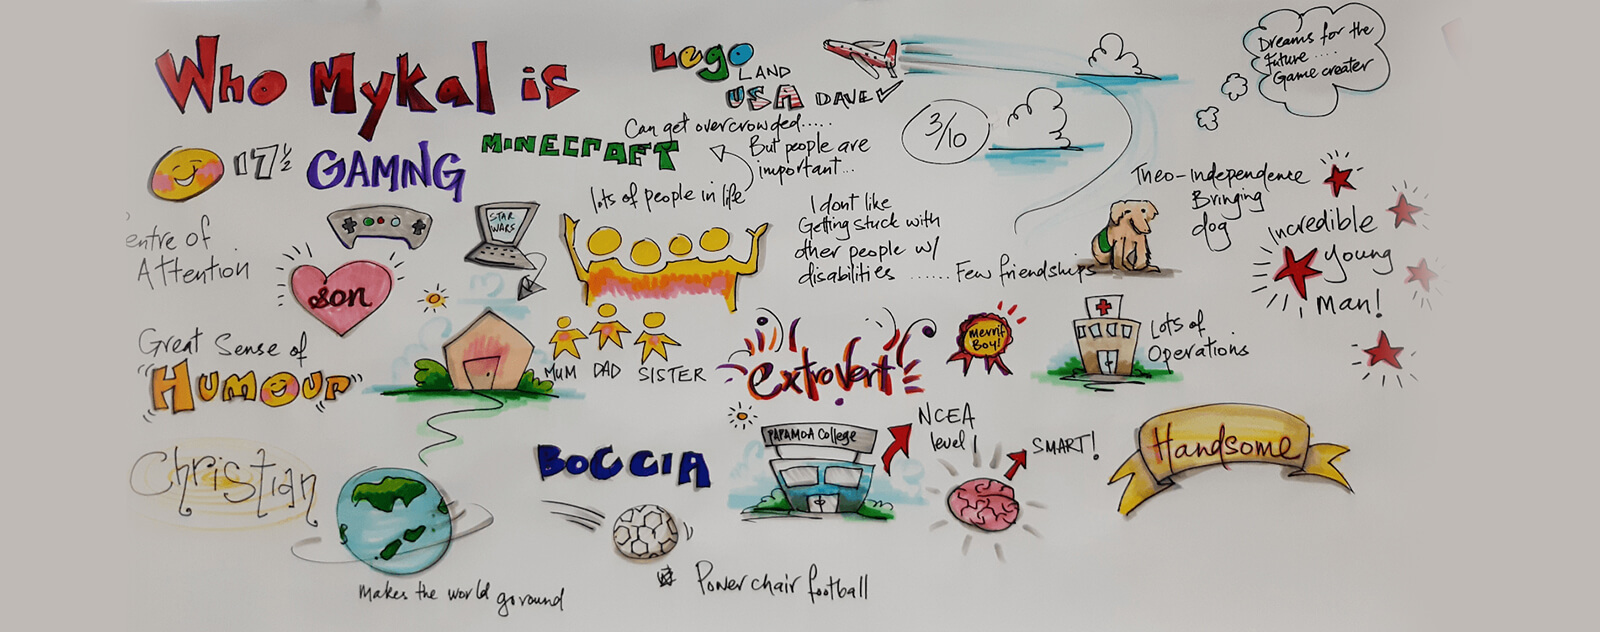 Who Mykal is
17½
GAMING
MINECRAFT
LEGO
LAND
USA DAVE
3/10
Dreams for the
Future....
Game creater
Can get overcrowded.....
But people are
important...
lots of people in life
entre of
Attention
son
STAR
WARS
I dont like
Getting stuck with
other people w/
disabilities ...... Few friendships
Theo-Independence
Bringing
dog
Incredible
Young
man!
Great Sense of
"HUMOUR"
MUM DAD SISTER
extrovert
Merrit
Boy!
Lots of
Operations
Christian
Makes the world go round
BOCCIA
Powerchair football
PAPAMOA College
NCEA
level 1
SMART!
Handsome